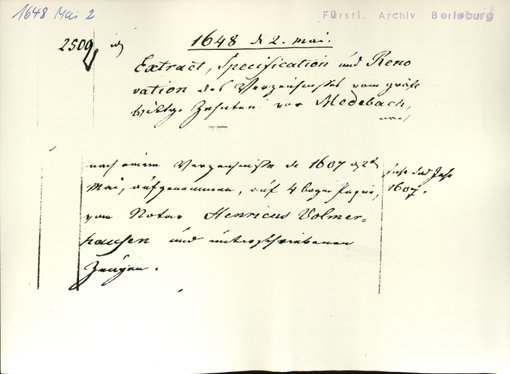 1648 Mai 2
Fürstl. Archiv Berleburg
2509
1648 d 2. Mai.
Extract, Specification und Reno
vation des Verzeichnisses vom gräfl
Zehnten vor Medebach,
nach
nach einem Verzeichnisse de 1607
Mai, aufgenommen, auf 4 bogen Papier,
vom Notar Henricus Volmer-
hausen und unterschriebenen
Zeugen.
siehe das Jahr
1607.